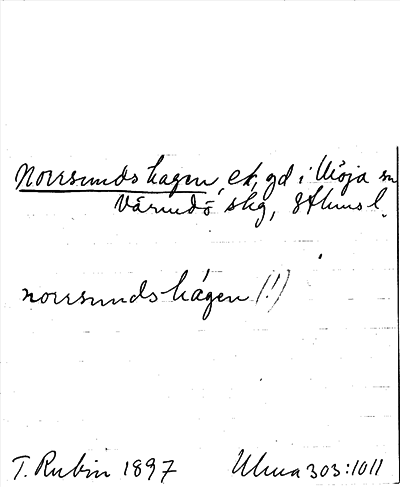 Norrsundshagen, ek, gd i Möja sn
Värmdö skg, Sthms l.
norrsundshágen (!)
T. Rubin 1897 Ulma 303:1011